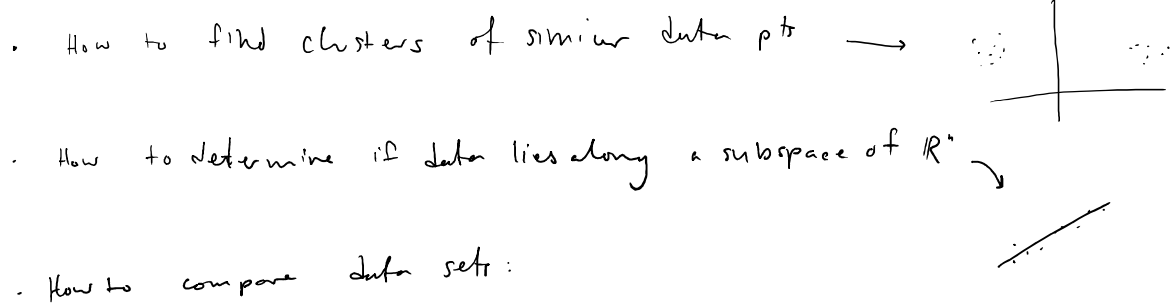 . How to find clusters of similar data pts →
. How to determine if data lies along a subspace of ℝⁿ
. How to compare data sets: